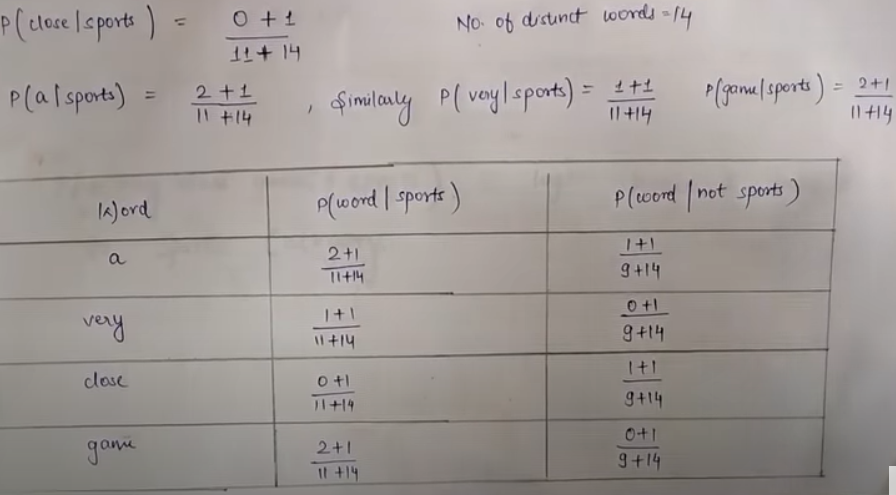 P(close|sports) = 0+1/11+14 No. of distinct words=14
P(a|sports) = 2+1/11+14 , Similarly P(very|sports) = 1+1/11+14 P(game|sports) = 2+1/11+14
Word P(word|sports) P(word|not sports)
a 2+1/11+14 1+1/9+14
very 1+1/11+14 0+1/9+14
close 0+1/11+14 1+1/9+14
game 2+1/11+14 0+1/9+14